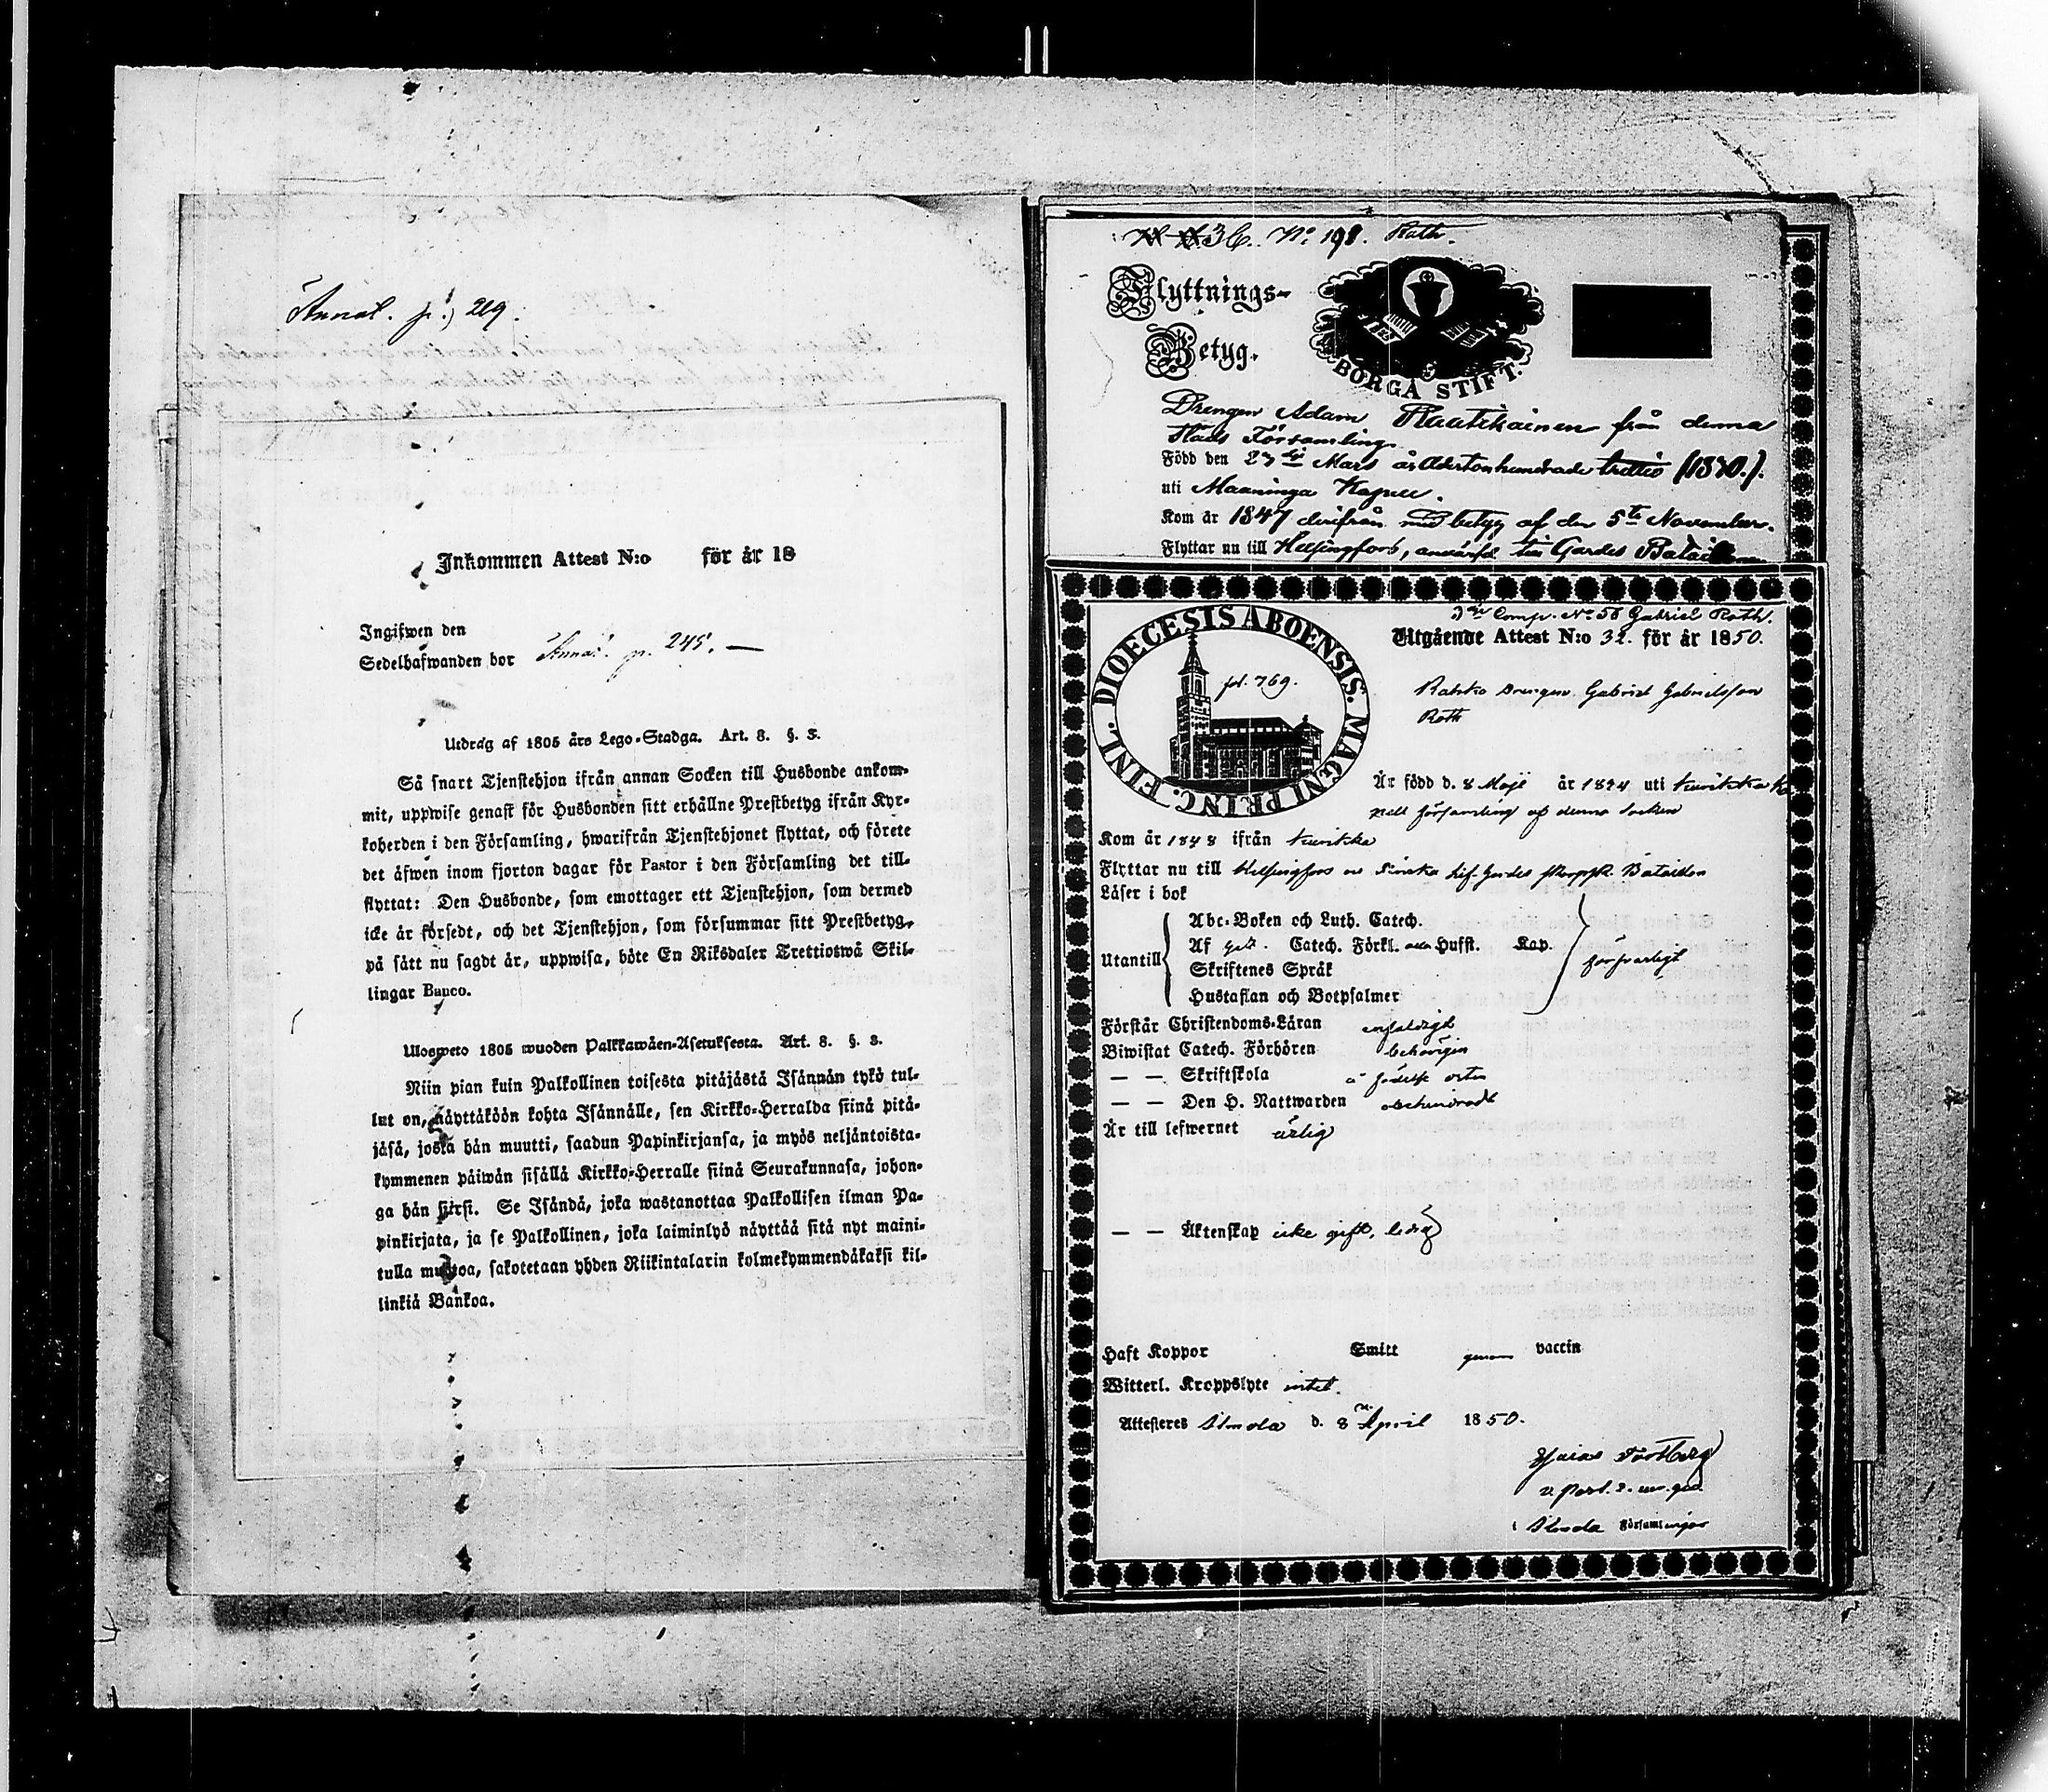 Annot. p. 219.
Inkommen Attest N:o för år 18
Ingifwen den
Sedelhafwanden bor Annot. p. 245. —
Utdrag af 1805 års Lego-Stadga. Art. 8. §. 3.
Så snart Tjenstehjon ifrån annan Socken till Husbonde ankom-
mit, uppwise genast för Husbonden sitt erhållne Prestbetyg ifrån Kyr-
koherden i den Församling, hwarifrån Tjenstehjonet flyttat, och förete
det äfwen inom fjorton dagar för Pastor i den Församling det till-
flyttat: Den Husbonde, som emottager ett Tjenstehjon, som dermed
icke är försedt, och det Tjenstehjon, som försummar sitt Prestbetyg,
på sätt nu sagdt är, uppwisa, böte En Riksdaler Trettiotwå Skil-
lingar Banco.
Ulosweto 1805 wuoden Palkkawäen-Asetuksesta. Art. 8. §. 3.
Niin pian kuin Palkollinen toisesta pitäjästä Isännän tykö tul-
lut on, näyttäköön kohta Isännälle, sen Kirkko-Herralda siinä pitä-
jäsä, josta hän muutti, saadun Papinkirjansa, ja myös neljäntoista-
kymmenen päiwän sisällä Kirkko-Herralle siinä Seurakunnasa, johon-
ga hän siirsi. Se Isändä, joka wastanottaa Palkollisen ilman Pa-
pinkirjata, ja se Palkollinen, joka laiminlyö näyttää sitä nyt maini-
tulla muotoa, sakotetaan yhden Riikintalarin kolmekymmendäkaksi kil-
linkiä Bankoa.
36. No 198. Rath.
Flyttnings-
Betyg.
BORGÅ STIFT.
Drengen Adam Rautiainen från denna
Stads Församling.
Född den 27de Mars år Adertonhundrade trettio (1830.).
uti Maaninga Kapell.
Kom år 1847 derifrån med betyg af den 5te November.
Flyttar nu till Helsingfors, antagen till Gardes Bataillon
DIOECESIS ABOENSIS. MAGNI PRINC. FINL.
fol. 769.
Comp. No 58 Gabriel Roth.
Utgående Attest N:o 32. för år 1850.
Drengen Gabriel Gabrielsson
Roth
Är född d. 8 Maji år 1824 uti Kurikka Ka
pell församling af denna socken
Kom år 1848 ifrån Kurikka
Flyttar nu till Helsingfors o Finska Lif Gardes skarpsk. Bataillon
Läser i bok
Utantill
Abc-Boken och Luth. Catech.
Af Catech. Förkl. Hufst. Kap.
Skriftenes Språk
Hustaflan och Botpsalmer
försvarligt
Förstår Christendoms-Läran enfaldigt
Biwistat Catech. Förhören behörigen
— — Skriftskola å födelse orten
— — Den H. Nattwarden obehindradt
Är till lefwernet ärlig
— — Äktenskap icke gift, ledig
Haft Koppor Smitt genom vaccin
Witterl. Kroppslyte intet.
Attesteres Ilmola d. 8 April 1850.
Esaias Forsberg
v. Past.
i Ilmola Församlingar